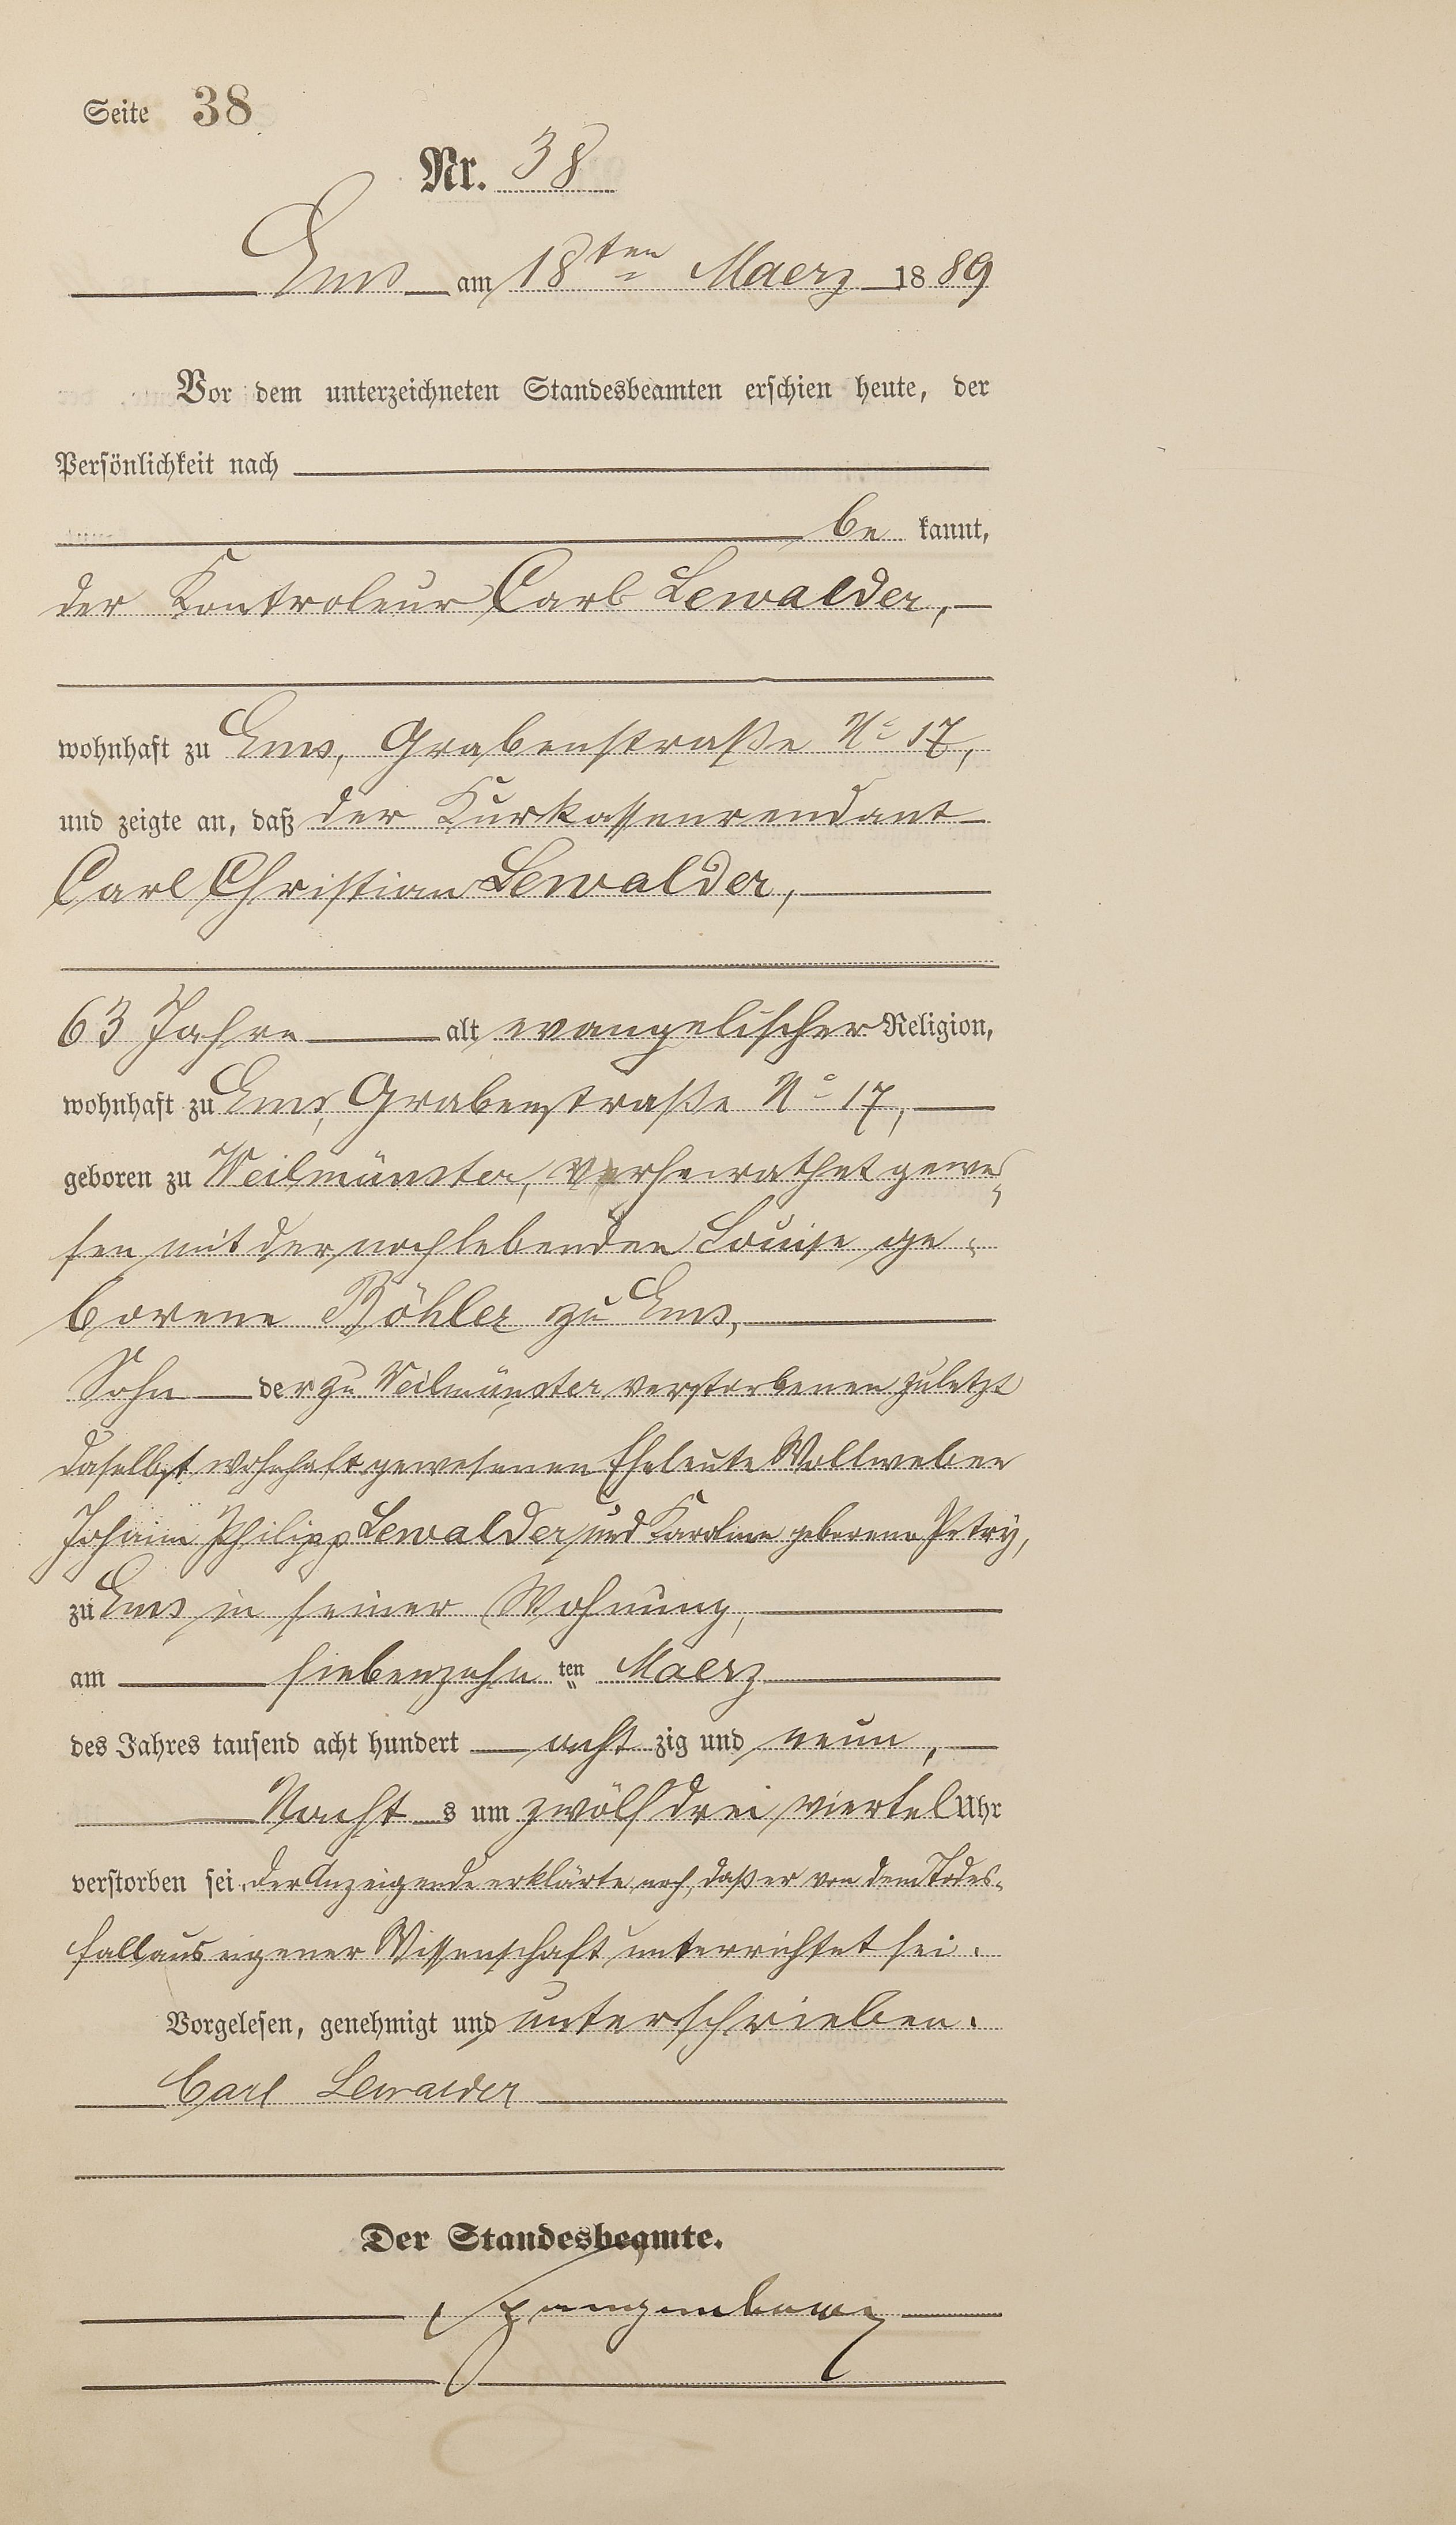 Seite 38
Nr. 38
Ems am 18ten Maerz 1889
Vor dem unterzeichneten Standesbeamten erschien heute, der
Persönlichkeit nach
be kannt,
der Kontroleur Carl Lewalder,
wohnhaft zu Ems, Grabenstraße No 17,
und zeigte an, daß der Kurkassenrendant
Carl Christian Lewalder,
63 Jahre alt evangelischer Religion,
wohnhaft zu Ems, Grabenstraße No 17,
geboren zu Weilmünster, verheirathet gewe-
sen mit der noch lebenden Louise ge-
borene Böhler zu Ems,
Sohn der zu Weilmünster verstorbenen zuletzt
daselbst wohnhaft gewesenen Eheleute Wollweber
Johann Philipp Lewalder und Karoline geborene Petry,
zu Ems in seiner Wohnung,
am siebenzehn ten Maerz
des Jahres tausend acht hundert acht zig und neun,
Nacht s um zwölf drei viertel Uhr
verstorben sei. Der Anzeigende erklärte noch, daß er von dem Todes-
fall aus eigener Wissenschaft unterrichtet sei.
Vorgelesen, genehmigt und unterschrieben.
Carl Lewalder
Der Standesbeamte.